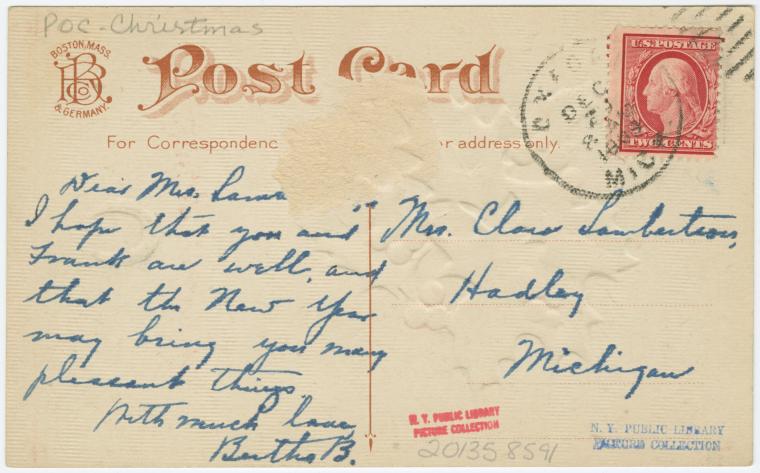 POC-Christmas
BOSTON, MASS.
BB CO
& GERMANY.
Post Card
For Correspondenc
or address only.
U.S. POSTAGE
TWO CENTS
DEC
MICH
Dear Mrs.
I hope that you and
Frank are well, and
that the New Year
may bring you many
pleasant things.
With much love,
Bertha B.
Mrs. Clara Lambertson,
Hadley
Michigan
N. Y. PUBLIC LIBRARY
PICTURE COLLECTION
201358591
N. Y. PUBLIC LIBRARY
PICTURE COLLECTION